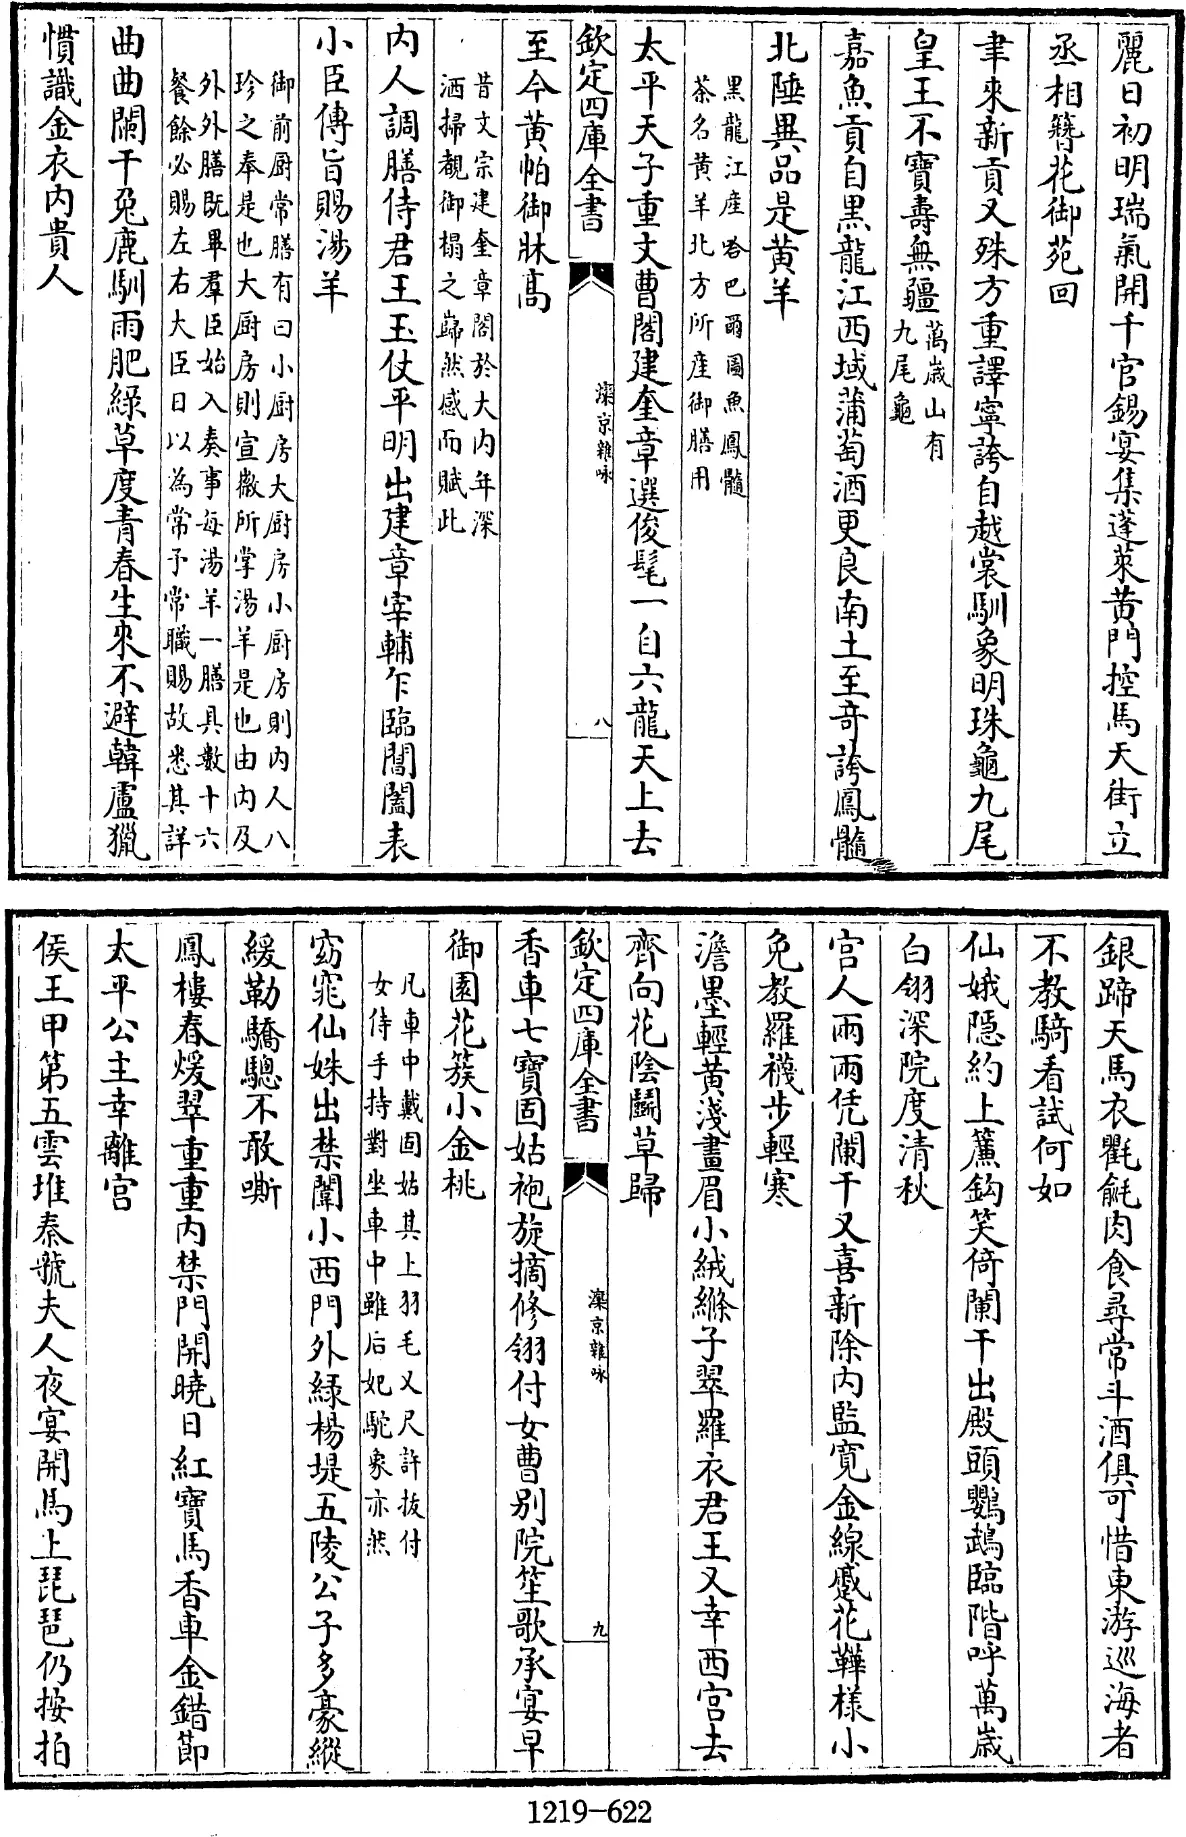 麗日初明瑞氣開千官錫宴集蓬萊黄門控馬天街立
丞相簪花御苑回
聿來新貢又殊方重譯寧誇自越裳馴象明珠龜九尾
皇王不寶壽無疆萬歲山有
九尾龜
嘉魚貢自黑龍江西域蒲萄酒更良南土至奇誇鳳髓
北陲異品是黄羊
黑龍江産哈巴爾圖魚鳳髓
茶名黄羊北方所産御膳用
太平天子重文曹閣建奎章選俊髦一自六龍天上去
欽定四庫全書
灤京雜咏
八
至今黄帕御牀髙
昔文宗建奎章閣於大内年深
洒掃覩御榻之巋然感而賦此
内人調膳侍君王玉仗平明出建章宰輔乍臨閶闔表
小臣傳旨賜湯羊
御前厨常膳有曰小厨房大厨房小厨房則内人八
珍之奉是也大厨房則宣徽所掌湯羊是也由内及
外外膳既畢羣臣始入奏事每湯羊一膳具數十六
餐餘必賜左右大臣日以為常予常職賜故悉其詳
曲曲闌干兔鹿馴雨肥緑草度青春生來不避韓盧獵
慣識金衣内貴人
銀蹄天馬衣氍毹肉食尋常斗酒俱可惜東游巡海者
不教騎看試何如
仙娥隠約上簾鈎笑倚闌干出殿頭鸚鵡臨階呼萬歲
白翎深院度清秋
宫人兩兩凭闌干又喜新除内監寛金線蹙花鞾様小
免教羅襪步輕寒
澹墨輕黄淺畫眉小絨縧子翠羅衣君王又幸西宫去
齊向花陰鬭草歸
欽定四庫全書
灤京雜咏
九
香車七寶固姑袍旋摘修翎付女曹别院笙歌承宴早
御園花簇小金桃
凡車中戴固姑其上羽毛又尺許拔付
女侍手持對坐車中雖后妃駝象亦然
窈窕仙姝出禁闈小西門外緑楊堤五陵公子多豪縱
緩勒驕驄不敢嘶
鳳樓春煖翠重重内禁門開曉日紅寶馬香車金錯節
太平公主幸離宫
侯王甲第五雲堆秦虢夫人夜宴開馬上琵琶仍按拍
1219-622